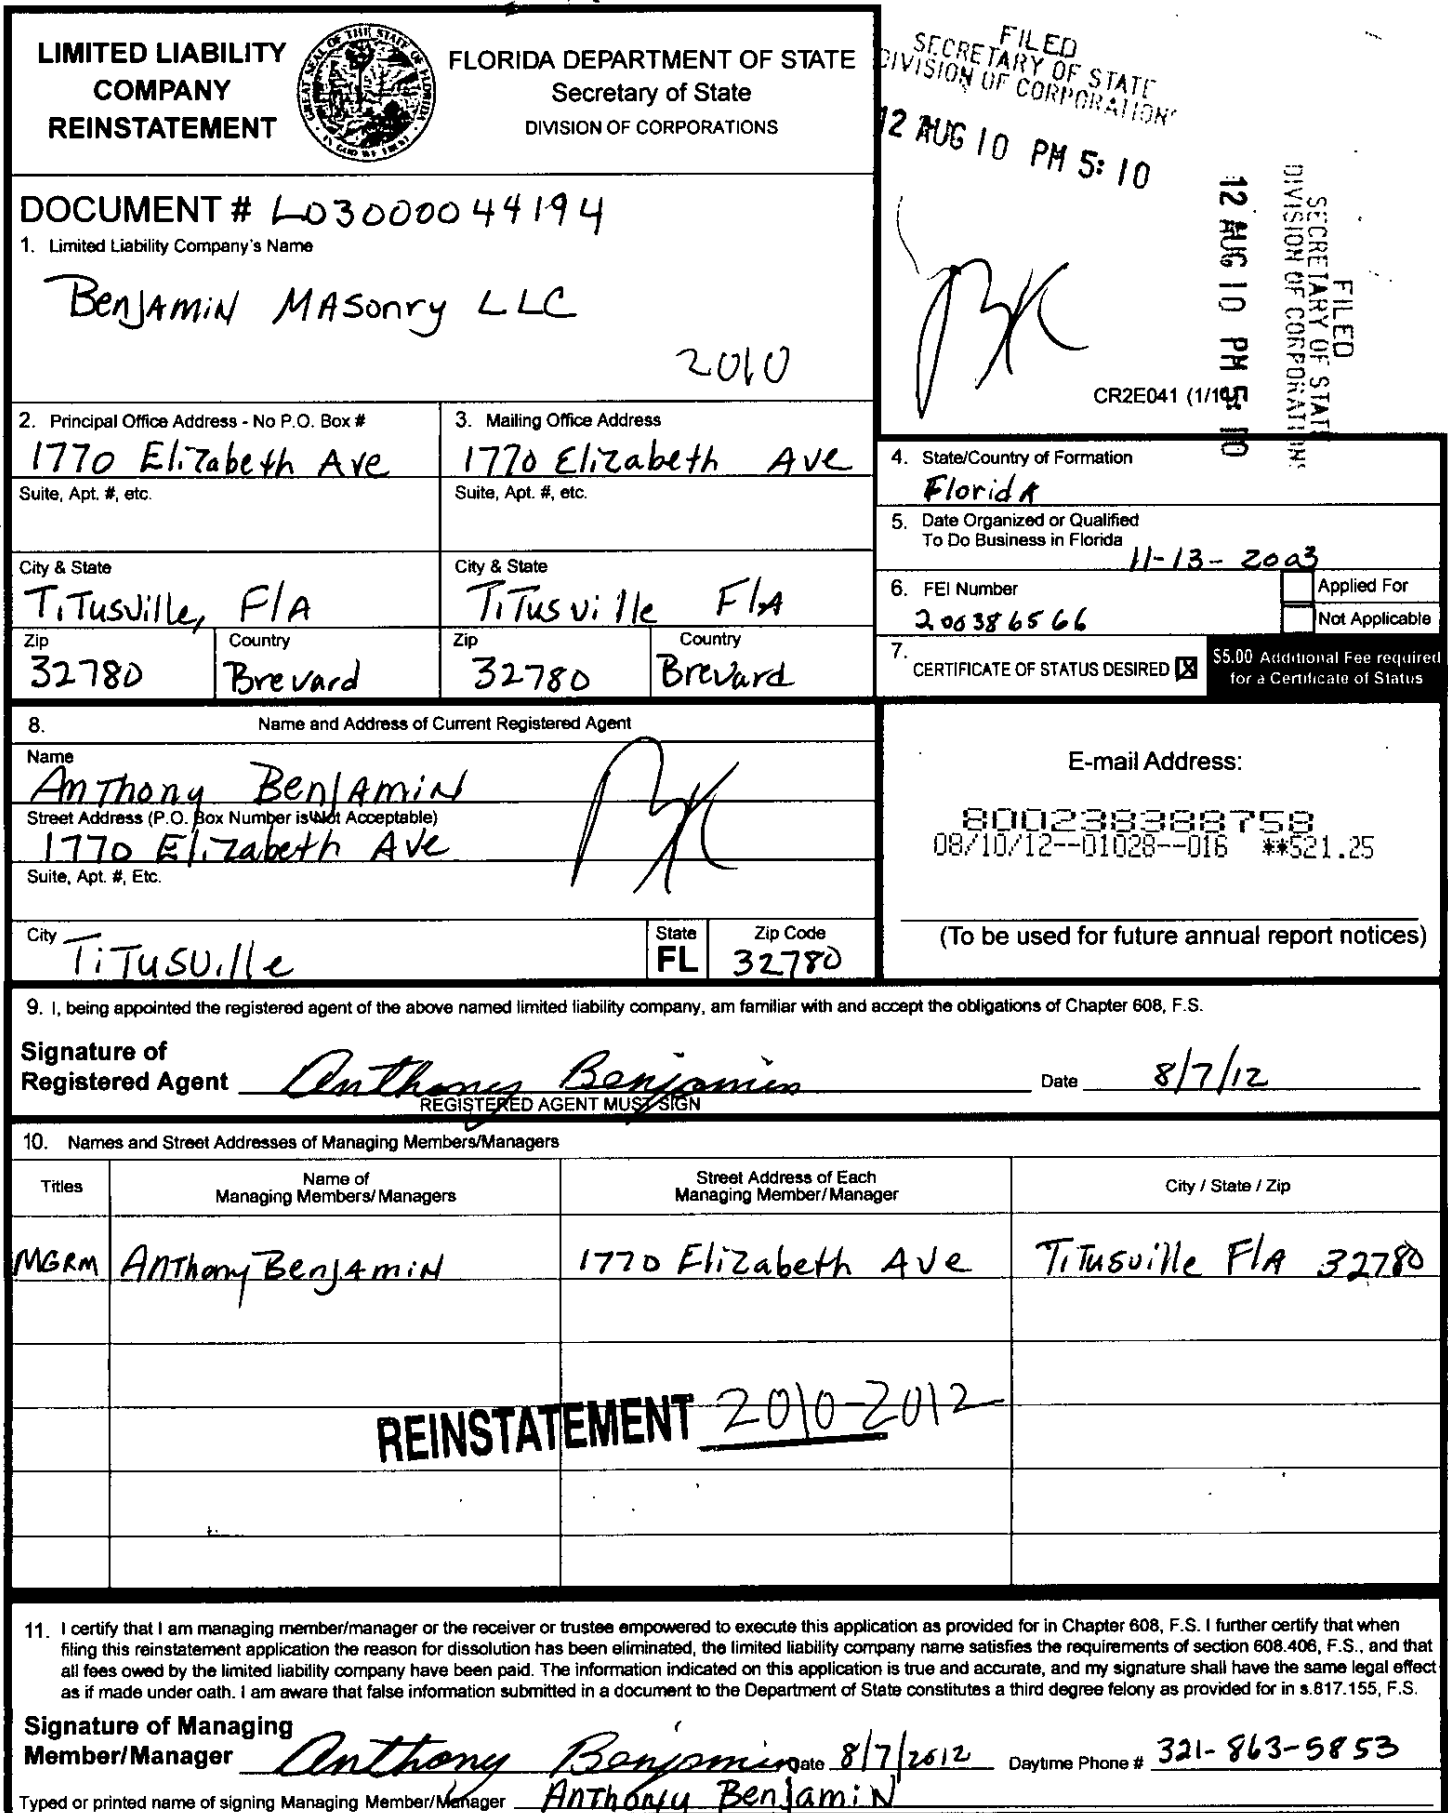 LIMITED LIABILITY
COMPANY
REINSTATEMENT
GREAT SEAL OF THE STATE OF FLORIDA
IN GOD WE TRUST
FLORIDA DEPARTMENT OF STATE
Secretary of State
DIVISION OF CORPORATIONS
FILED
SECRETARY OF STATE
DIVISION OF CORPORATIONS
12 AUG 10 PM 5:10
FILED
SECRETARY OF STATE
DIVISION OF CORPORATIONS
12 AUG 10 PM 5:10
DOCUMENT # L03000044194
1. Limited Liability Company's Name
BenJAMiN MASonry LLC
2010
BK
CR2E041 (1/1
2. Principal Office Address - No P.O. Box #
1770 Elizabeth Ave
Suite, Apt. #, etc.
City & State
TiTusville, FlA
Zip
32780
Country
Brevard
3. Mailing Office Address
1770 Elizabeth Ave
Suite, Apt. #, etc.
City & State
TiTusville FlA
Zip
32780
Country
Brevard
4. State/Country of Formation
FloridA
5. Date Organized or Qualified
To Do Business in Florida
11-13-2003
6. FEI Number
200386566
Applied For
Not Applicable
7. CERTIFICATE OF STATUS DESIRED X
$5.00 Additional Fee required
for a Certificate of Status
8. Name and Address of Current Registered Agent
Name
AnThony BenJAMiN
Street Address (P.O. Box Number is Not Acceptable)
1770 Elizabeth Ave
Suite, Apt. #, Etc.
City
TiTusville
State
FL
Zip Code
32780
BK
E-mail Address:
800238388758
08/10/12--01028--016 **521.25
(To be used for future annual report notices)
9. I, being appointed the registered agent of the above named limited liability company, am familiar with and accept the obligations of Chapter 608, F.S.
Signature of
Registered Agent Anthony Benjamin Date 8/7/12
REGISTERED AGENT MUST SIGN
10. Names and Street Addresses of Managing Members/Managers
Titles
Name of
Managing Members/Managers
Street Address of Each
Managing Member/Manager
City / State / Zip
MGRM AnThony BenJAMiN 1770 Elizabeth Ave TiTusville FlA 32780
REINSTATEMENT 2010-2012
11. I certify that I am managing member/manager or the receiver or trustee empowered to execute this application as provided for in Chapter 608, F.S. I further certify that when
filing this reinstatement application the reason for dissolution has been eliminated, the limited liability company name satisfies the requirements of section 608.406, F.S., and that
all fees owed by the limited liability company have been paid. The information indicated on this application is true and accurate, and my signature shall have the same legal effect
as if made under oath. I am aware that false information submitted in a document to the Department of State constitutes a third degree felony as provided for in s.817.155, F.S.
Signature of Managing
Member/Manager Anthony Benjamin Date 8/7/2012 Daytime Phone # 321-863-5853
Typed or printed name of signing Managing Member/Manager AnThony BenJamiN